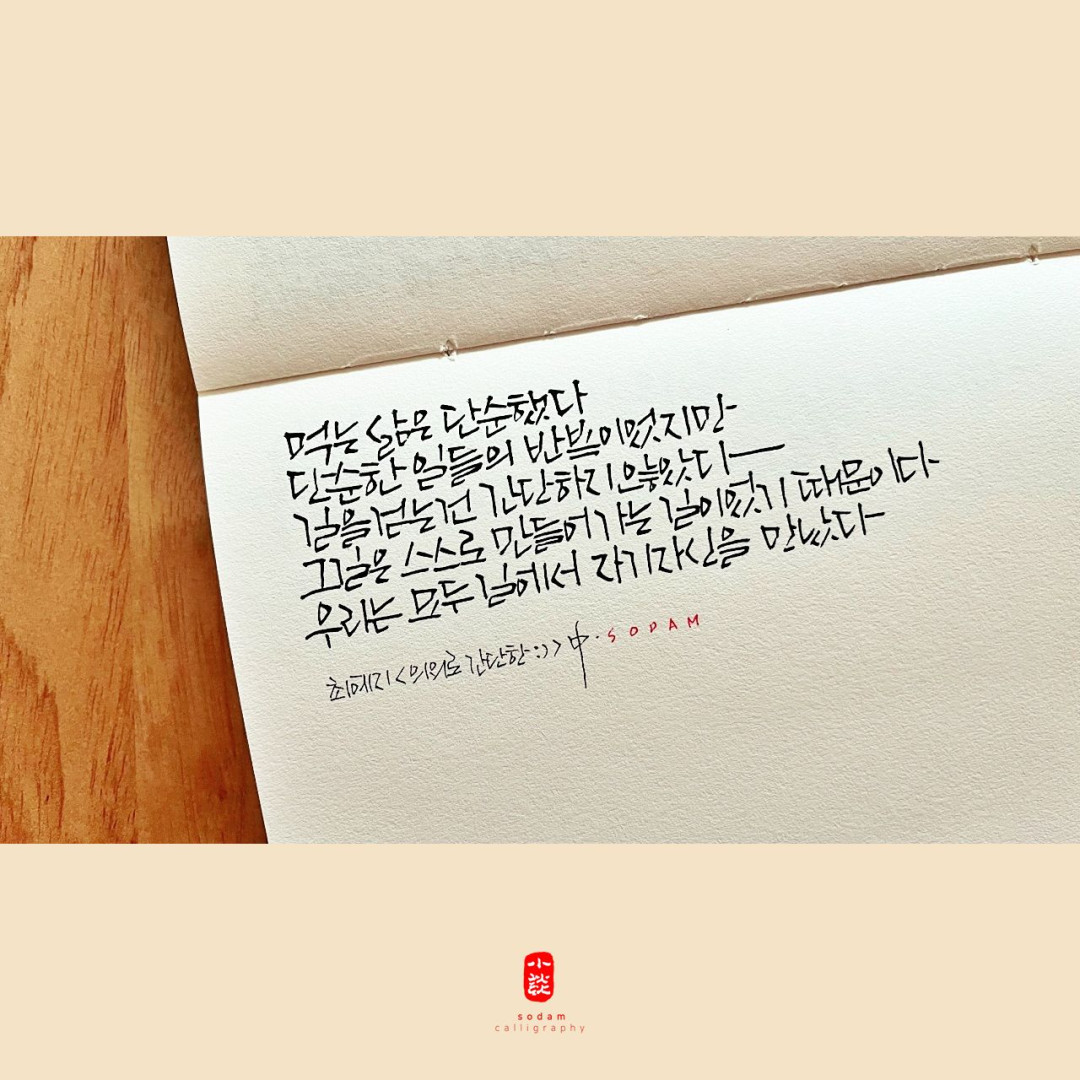 먹는 삶은 단순했다
단순한 일들의 반복이었지만
길을 걷는건 간단하지 않았다
그길은 스스로 만들어 가는 길이었기 때문이다
우리는 모두 길에서 자기자신을 만났다
최예지 <의외로 간단한 :)> 中 · SODAM
小談
sodam
calligraphy